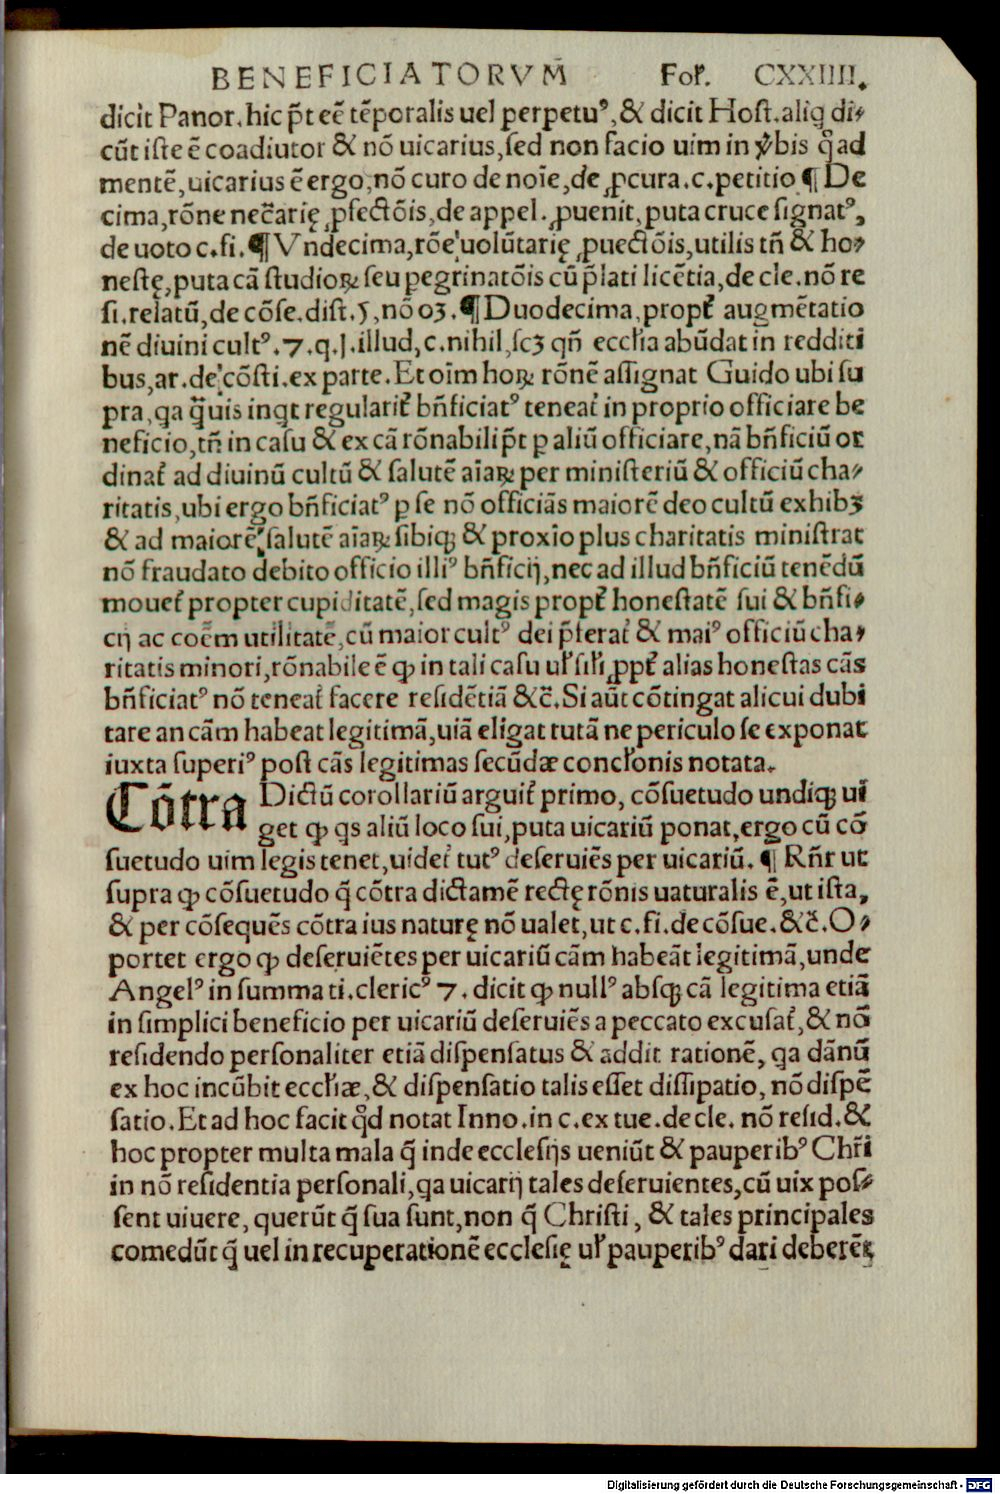 BENEFICIATORVM Foł. CXXIIII.
dicit Panor. hic p̃t eẽ tẽporalis uel perpetuꝰ, & dicit Host. aliq̃ di-
cũt iste ẽ coadiutor & nõ uicarius, sed non facio uim in ꝟbis q̊ ad
mentẽ, uicarius ẽ ergo, nõ curo de noĩe, de ꝓcura. c. petitio ¶ De
cima, rõne nec̃arię ꝓfectõis, de appel. ꝓuenit, puta cruce signatꝰ,
de uoto c. fi. ¶ Vndecima, rõe uolũtarię ꝓuectõis, utilis tñ & ho-
nestę, puta cã studioꝝ seu pegrinatõis cũ p̃lati licẽtia, de cle. nõ re
si. relatũ, de cõse. dist. 5, nõ oꝫ. ¶ Duodecima, propt̃ augmẽtatio
nẽ diuini cultꝰ. 7. q. j. illud, c. nihil, scꝫ qñ eccłia abũdat in redditi
bus, ar. de cõsti. ex parte. Et oĩm hoꝝ rõnẽ assignat Guido ubi su
pra, qa q̃uis inqt regularit̃ bñficiatꝰ teneat̃ in proprio officiare be
neficio, tñ in casu & ex cã rõnabili p̃t ꝑ aliũ officiare, nã bñficiũ or
dinat̃ ad diuinũ cultũ & salutẽ aĩaꝝ per ministeriũ & officiũ cha-
ritatis, ubi ergo bñficiatꝰ ꝑ se nõ officiãs maiorẽ deo cultũ exhibꝫ
& ad maiorẽ salutẽ aĩaꝝ sibiqꝫ & proxĩo plus charitatis ministrat
nõ fraudato debito officio illiꝰ bñficij, nec ad illud bñficiũ tenẽdũ
mouet̃ propter cupiditatẽ, sed magis propt̃ honestatẽ sui & bñfi-
cij ac coẽm utilitatẽ, cũ maior cultꝰ dei p̃ferat̃ & maiꝰ officiũ cha-
ritatis minori, rõnabile ẽ ꝙ in tali casu uł siłi ꝓpt̃ alias honestas cãs
bñficiatꝰ nõ teneat̃ facere residẽtiã &c̃. Si aũt cõtingat alicui dubi
tare an cãm habeat legitimã, uiã eligat tutã ne periculo se exponat
iuxta superiꝰ post cãs legitimas secũdæ concłonis notata.
Cõtra Dictũ corollariũ arguit̃ primo, cõsuetudo undiqꝫ ui
get ꝙ qs aliũ loco sui, puta uicariũ ponat, ergo cũ cõ
suetudo uim legis tenet, uidet̃ tutꝰ deseruiẽs per uicariũ. ¶ Rñr ut
supra ꝙ cõsuetudo q̃ cõtra dictamẽ rectę rõnis uaturalis ẽ, ut ista,
& per cõsequẽs cõtra ius naturę nõ ualet, ut c. fi. de cõsue. &c̃. O-
portet ergo ꝙ deseruiẽtes per uicariũ cãm habeãt legitimã, unde
Angelꝰ in summa ti. clericꝰ 7. dicit ꝙ nullꝰ absqꝫ cã legitima etiã
in simplici beneficio per uicariũ deseruiẽs a peccato excusat̃, & nõ
residendo personaliter etiã dispensatus & addit rationẽ, qa dãnũ
ex hoc incũbit eccłiæ, & dispensatio talis esset dissipatio, nõ dispẽ
satio. Et ad hoc facit q̊d notat Inno. in c. ex tue. de cle. nõ resid. &
hoc propter multa mala q̃ inde ecclesijs ueniũt & pauperibꝰ Chr̃i
in nõ residentia personali, qa uicarij tales deseruientes, cũ uix pos-
sent uiuere, querũt q̃ sua sunt, non q̃ Christi, & tales principales
comedũt q̃ uel in recuperationẽ ecclesię uł pauperibꝰ dari deberẽt
Digitalisierung gefördert durch die Deutsche Forschungsgemeinschaft - DFG